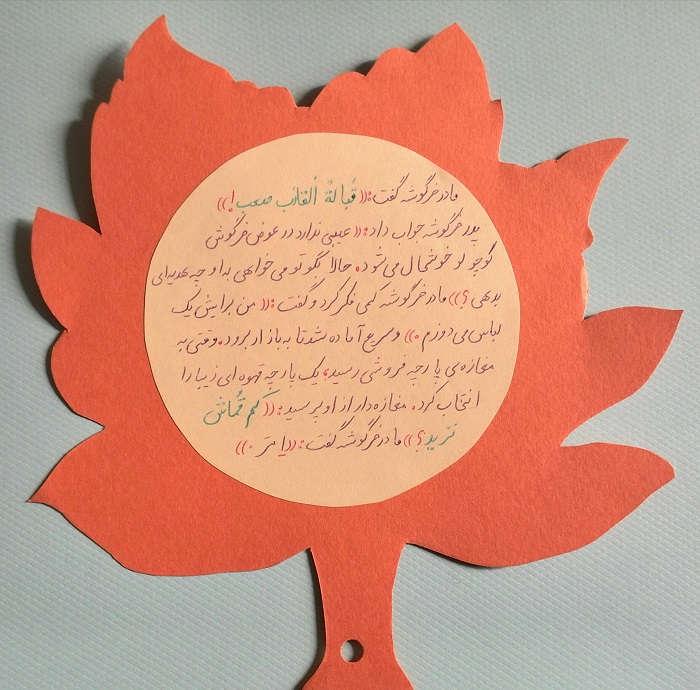 مادر خرگوشه گفت:((قُبالَةُ اَلقارَب صعب!))
پدر خرگوشه جواب داد:((عیبی ندارد در عوض خرگوش
کوچولو خوشحال می شود. حالا بگو تو می خواهی به او چه هدیه ای
بدهی؟)) مادر خرگوشه کمی فکر کرد و گفت:((من برایش یک
لباس می دوزم.)) و سریع آماده شد تا به بازار برود. وقتی به
مغازه ی پارچه فروشی رسید، یک پارچه قهوه ای زیبا را
انتخاب کرد. مغازه دار از او پرسید:((کَم قُماش
نرید؟)) مادر خرگوشه گفت:((۱ متر.))